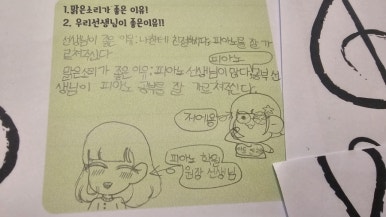 1.맑은소리가 좋은이유!
2. 우리선생님이 좋은이유!!
선생님이 좋은 이유: 나한테 친절하시다. 피아노를 잘 가
르쳐주신다
피아노
맑은소리가 좋은 이유: 피아노 선생님이 많다.
선생님이 피아노 공부를 잘 가르쳐주신다.
피아노 학원
원장 선생님